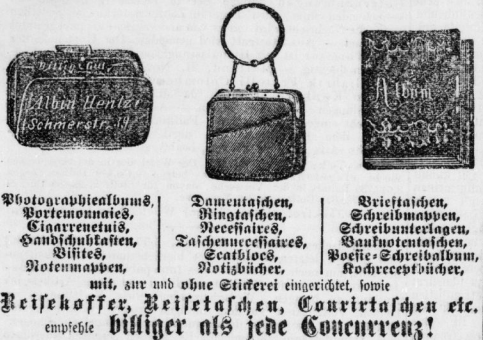 billig. gut.
Albin Hentze
Schmerstr. 19
Album
Photographiealbums,
Portemonnaies,
Cigarrenetuis,
Handschuhkasten,
Visites,
Notenmappen,
Damentaschen,
Ringtaschen,
Necessaires,
Taschennecessaires,
Scatblocs,
Notizbücher,
Brieftaschen,
Schreibmappen,
Schreibunterlagen,
Banknotentaschen,
Poesie-Schreibalbum,
Kochreceptbücher,
mit, zur und ohne Stickerei eingerichtet, sowie
Reisekoffer, Reisetaschen, Courirtaschen etc.
empfehle billiger als jede Concurrenz!